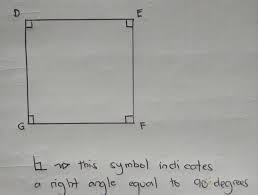 D E
G F
this symbol indicates
a right angle equal to 90 degrees